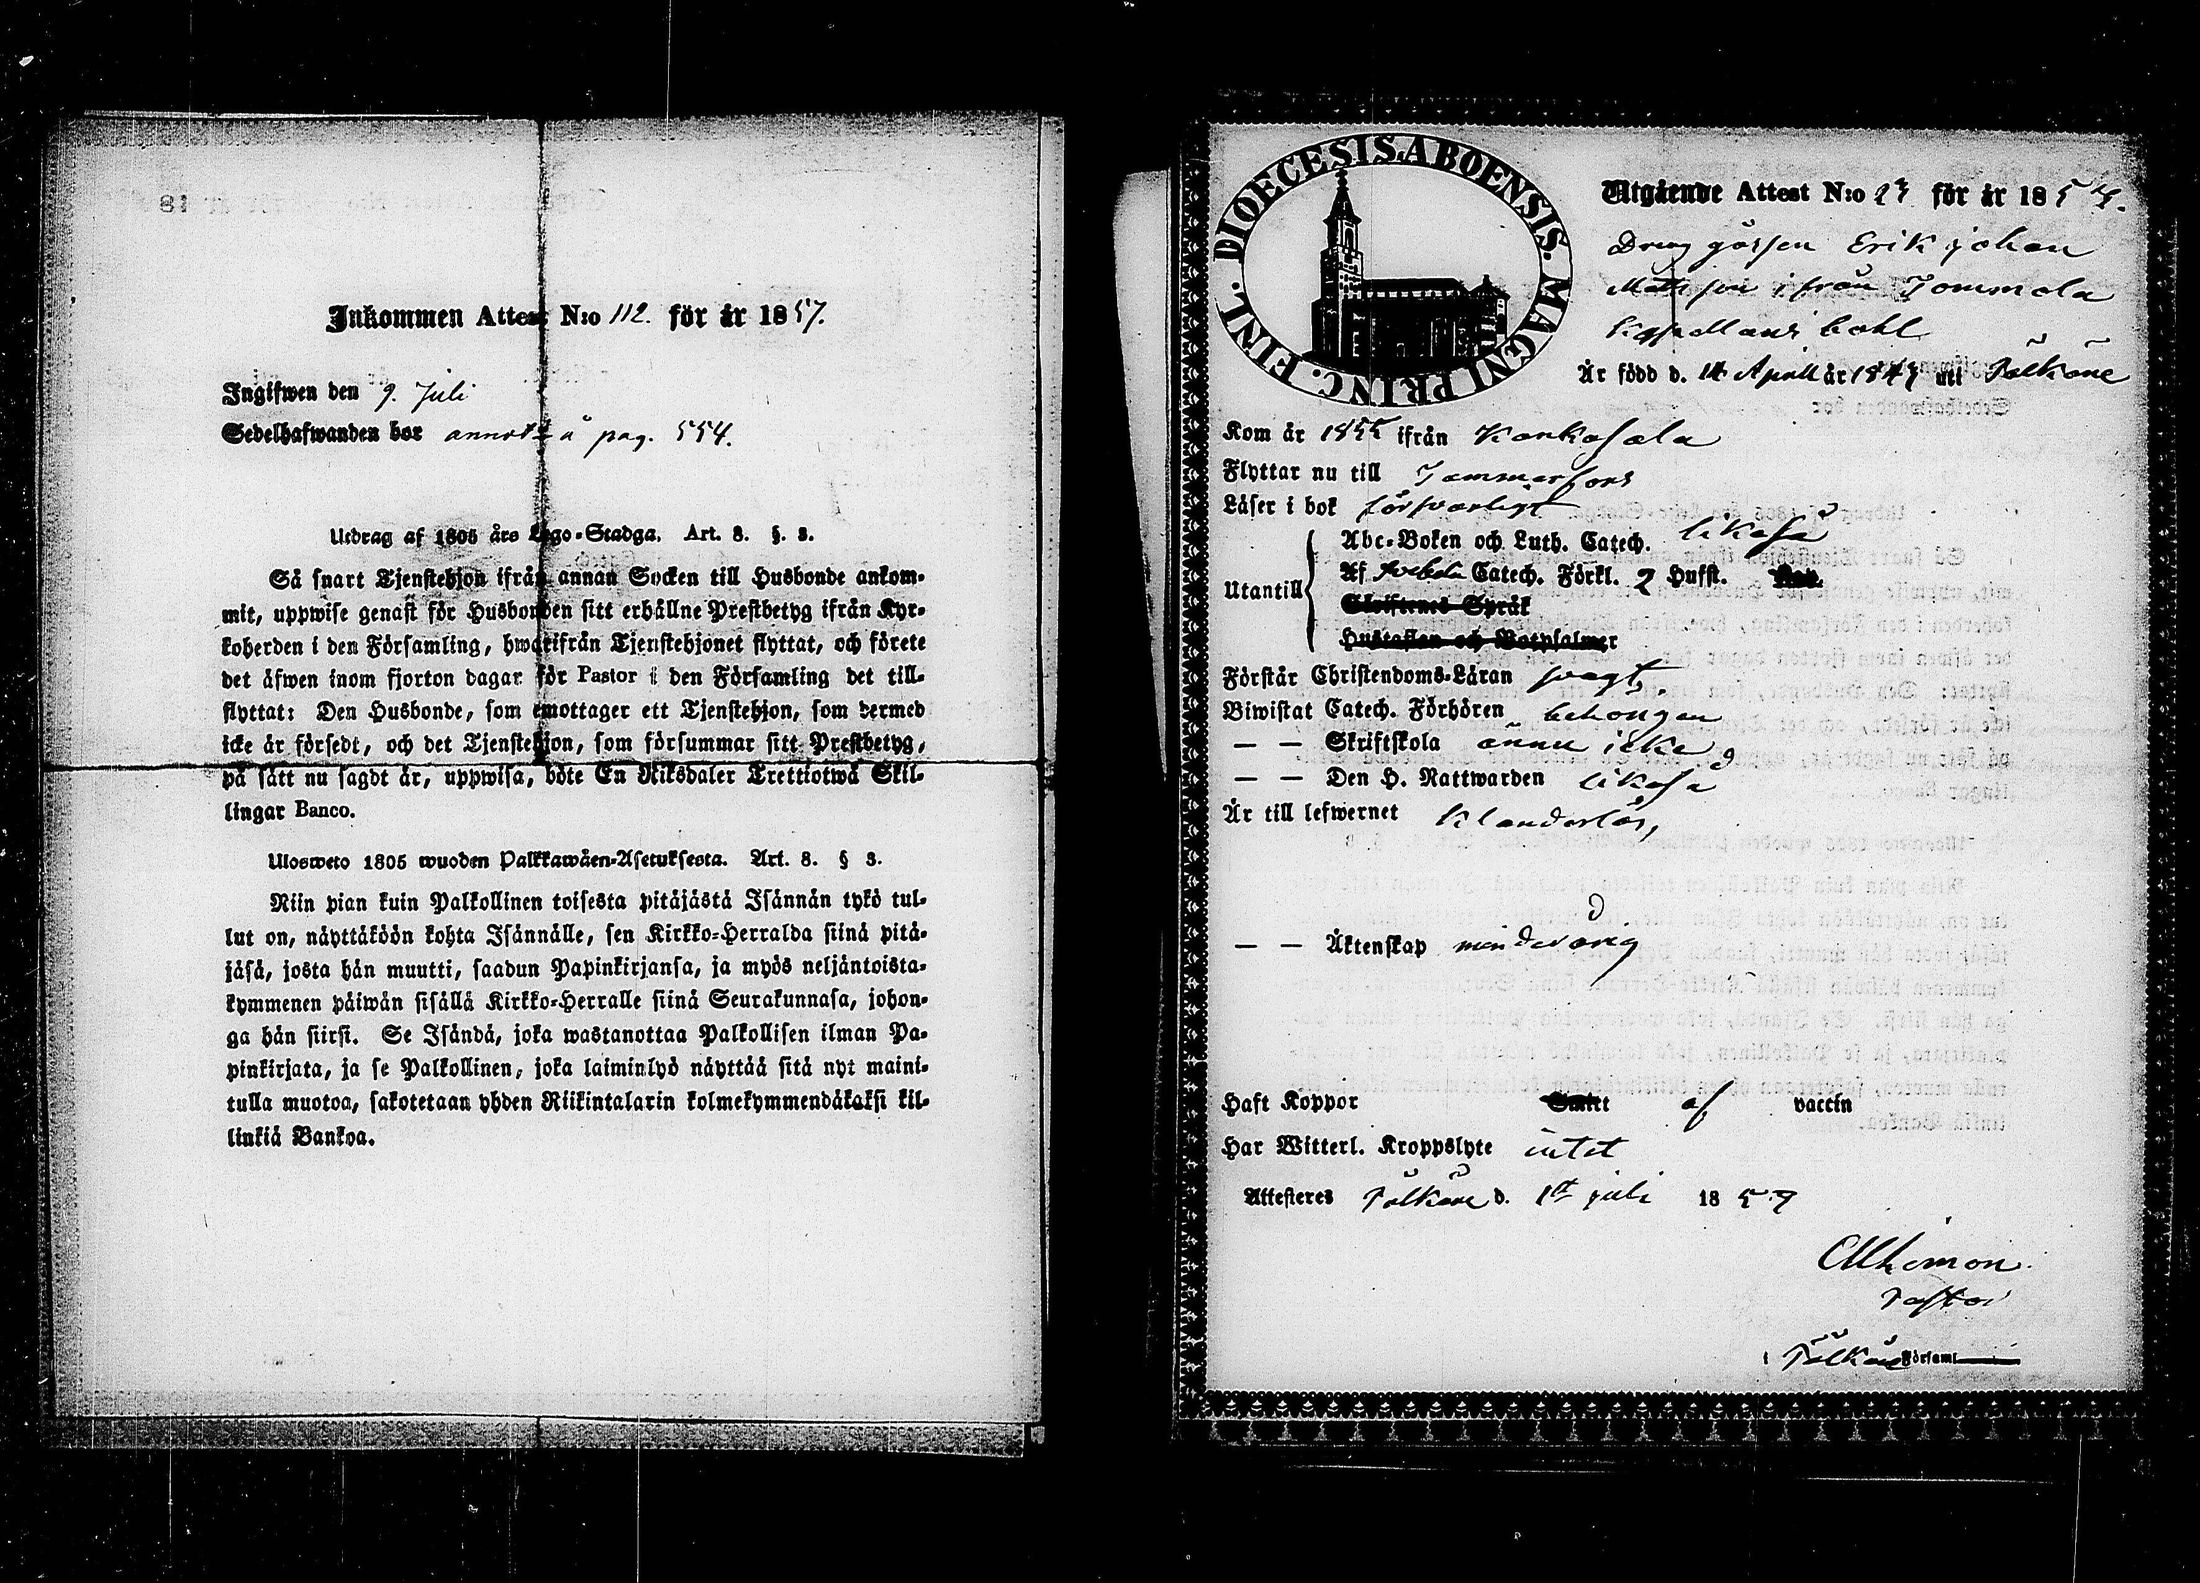 Inkommen Attest N:o 112. för år 1857.
Ingifwen den 9. Juli
Sedelhafwanden bor annot. å pag. 554.
Utdrag af 1805 års Lego-Stadga. Art. 8. §. 3.
Så snart Tjenstehjon ifrån annan Socken till Husbonde ankom-
mit, uppwise genast för Husbonden sitt erhållne Prestbetyg ifrån Kyr-
koherden i den Församling, hwarifrån Tjenstehjonet flyttat, och förete
det äfwen inom fjorton dagar för Pastor i den Församling det till-
flyttat: Den Husbonde, som emottager ett Tjenstehjon, som dermed
icke är försedt, och det Tjenstehjon, som försummar sitt Prestbetyg,
på sätt nu sagdt är, uppwisa, böte En Riksdaler Trettiotwå Skil-
lingar Banco.
Ulosweto 1805 wuoden Palkkawäen-Asetuksesta. Art. 8. § 3.
Niin pian kuin Palkollinen toisesta pitäjästä Isännän tykö tul-
lut on, näyttäköön kohta Isännälle, sen Kirkko-Herralda siinä pitä-
jäsä, josta hän muutti, saadun Papinkirjansa, ja myös neljäntoista-
kymmenen päiwän sisällä Kirkko-Herralle siinä Seurakunnasa, johon-
ga hän siirsi. Se Isändä, joka wastanottaa Palkollisen ilman Pa-
pinkirjata, ja se Palkollinen, joka laiminlyö näyttää sitä nyt maini-
tulla muotoa, sakotetaan yhden Riikintalarin kolmekymmendäkaksi kil-
linkiä Bankoa.
DIOECESIS ABOENSIS. MAGNI PRINC. FINL.
Utgående Attest N:o 27 för år 185
Dreng gossen Erik Johan
Mattsson ifrån Tommola
Kapellans bohl
Är född d. 14 April år 184 uti Pälkäne
Kom år 1855 ifrån Kankasala
Flyttar nu till Tammerfors
Läser i bok försvarligt
Utantill
Abc-Boken och Luth. Catech. likaså
Af Svebelii Catech. Förkl. 2 Hufst.
Skriftenes Språk
Hustaflan och Botpsalmer
Förstår Christendoms-Läran svagt,
Biwistat Catech. Förhören behörigen
— — Skriftskola ännu icke
— — Den H. Nattwarden likaså
Är till lefwernet klanderlös,
— — Äktenskap minderårig
Haft Koppor af vaccin
Har Witterl. Kroppslyte intet
Attesteres Pälkäne d. 1st juli 1857
Pastor
i Pälkäne Församl